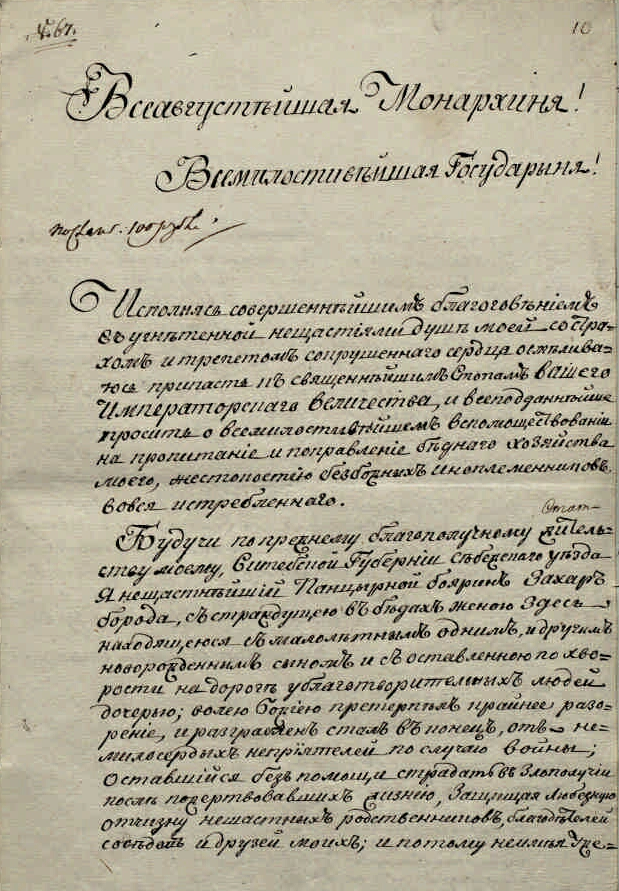 № 67.
10
Всеавгустѣйшая Монархиня!
Всемилостивѣйшая Государыня!
100 рублі.
Исполнясь совершеннѣйшимъ благоговѣніемъ
въ угнѣтенной нещастіями душѣ моей со стра-
хомъ и трепетомъ сокрушеннаго сердца осмѣлива-
юсь припасть къ священнѣйшимъ стопамъ вашего
Императорскаго величества, и всеподданнѣйше
просить о всемилостивѣйшемъ вспомоществованіи
на пропитаніе и поправленіе бѣднаго хозяйства
моего, жестокостію безбожныхъ иноплеменниковъ
вовся истребленнаго.
Будучи по прежнему благополучному жїтель-
ству моему, Витебской Губерніи Себежского уѣзда
Я нещастнѣйшій Панцырной бояринъ Захаръ
борода, съ страждущею въ бѣдахъ женою здесь
находящеюся съ малолѣтнымъ однимъ, и другимъ
новорожденнимъ сыномъ и съ оставленною по хво-
рости на дорогѣ у благотворительныхъ людей
дочерью; волею божіею претерпѣлъ крайнее разо-
реніе, и разграбленъ сталъ въ конецъ, отъ не-
милосердыхъ непріятелей по случаю войны;
Оставшійся безъ помощи страдать въ злополучіи
послѣ пожертвовавшихъ жизнію, защищая любезную
отчизну нещастныхъ родственниковъ, благодѣтелей
сосѣдей и друзей моихъ; и потому неимѣя Уже-